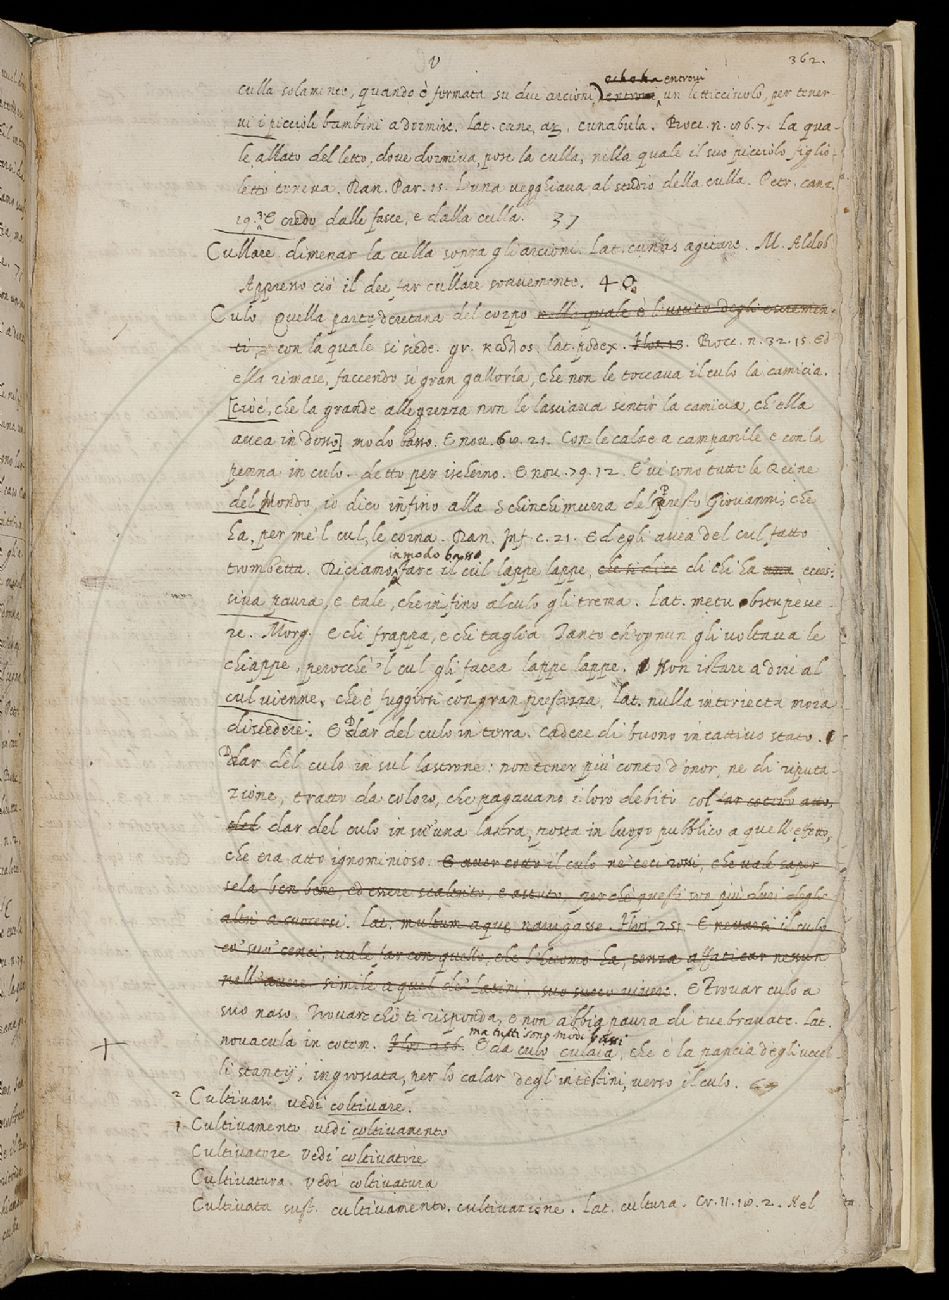 V
362.
echoha entrovi
culla solamente, quando è formata su due arcioni) entrovi, un letticciuolo, per tener
ui i piccioli bambini a dormire. Lat. cunæ, ar., cunabula. Bocc. n. 86. 7. La qua-
le allato del letto, dove dormiva, pose la culla, nella quale il suo picciolo figlio-
letto teneva. Dan. Par. 15. L'una vegghiava al studio della culla. Petr. canz.
19. 3. E credo dalle fasce, e dalla culla. 37
Cullare. dimenar la culla sopra gli arcioni. Lat. cunas agitare. M. Aldob.
Appresso ciò il dee far cullare soavemente. 40
Culo Quella parte deretana del corpo nella quale è l'uscito degli escremen-
ti, con la quale si siede. gr. κῶλος. lat. podex. Bocc. n. 32. 15. Ed
ella rimase, faccendo sì gran galloria, che non le toccava il culo la camicia.
[cioè, che la grande allegrezza non le lasciava sentir la camicia, ch'ella
avea in dosso] modo basso. E nov. 60. 21. Con le calze a campanile e con la
penna in culo. detto per ischerno. E nov. 79. 12. E vi sono tutte le Reine
del Mondo, io dico infino alla Schinchimurra del Presto Giovanni, che
ha, per me'l cul, le corna. Dan. Inf. c. 21. Ed egli avea del cul fatto
in modo basso
trombetta. Diciamo, fare il cul lappe lappe, che si dice di chi ha eces-
siva paura, e tale, che infino al culo gli trema. Lat. metu obstupesce-
re. Morg. E chi frappa, e chi taglia Tanto ch'ognun gli voltava le
chiappe, perocchè 'l cul gli facea lappe lappe. Non istare a dire al
cul vienne, che è fuggirsi con gran prestezza, Lat. nulla interiecta mora
discedere. E Dar del culo in terra. cadere di buono in cattivo stato.
Dar del culo in sul lastrone: non tener più conto d'onor, ne di riputa-
zione, tratto da coloro, che pagavano i loro debiti col far cotesto atto,
del dar del culo in su una lastra, posta in luogo pubblico a quell'effetto,
che era atto ignominioso. E aver cotto il culo ne' ceci rossi, che vale saper-
sela ben bene, ed essere scaltrito, e astuto, perchè questi son più duri degli
altri a cuocersi. Lat. multum aquæ navigasse. Flos. 251. E pararsi il culo
co' suoi cenci, vale far con quello, che l'huomo ha, senza affaticar nessun
nell'avere. simile a quel de' Latini. suo succo vivere. E Trovar culo a
suo naso. Trovare chi ti risponda, e non abbia paura di tue bravate. Lat.
ma tutti sono modi bassi
novacula in cotem. Flos. 256. E da culo culaia, che è la pancia degli uccel-
li stantij, ingrossata, per lo calar degl'intestini, verso il culo.
2 Cultivare vedi coltivare.
1 Cultivamento vedi coltivamento
Cultivatore vedi coltivatore
Cultivatura vedi coltivatura
Cultivata sust. cultivamento, cultivazione. Lat. cultura. Cr. 11. 10. 2. Nel